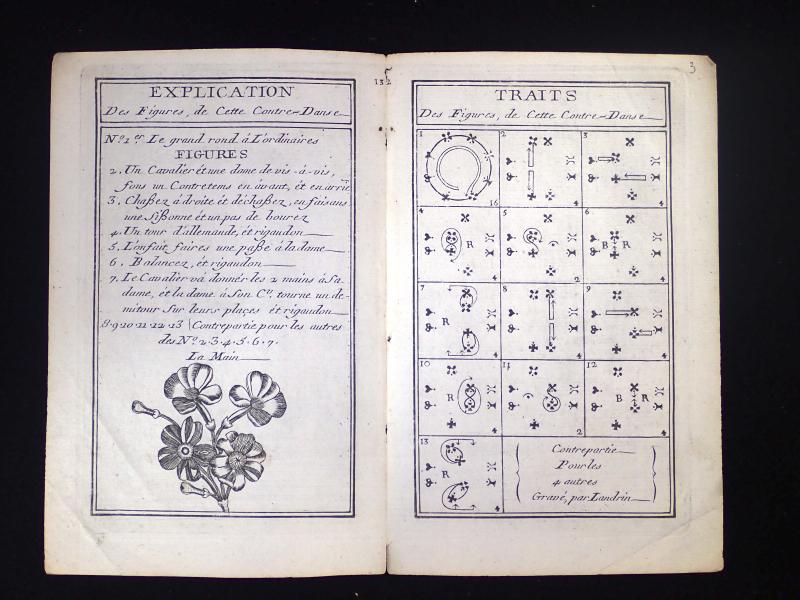 EXPLICATION
Des Figures, de Cette Contre-Danse
N.º 1.er Le grand rond á L'ordinaires
FIGURES
2. Un Cavalier ét une dame de vis-á-vis,
fons un Contretems en àvant, ét en arrie
3. Chaßez à droite ét déchaßez, en faisans
une Sißonne ét un pas de bourez
4. Un tour d'allemande, ét rigaudon
5. L'on fait faires une páße á la dame
6. Balancez, ét rigaudon
7. Le Cavalier vá donnér les 2 mains á Sa
dame, ét la dame á Son C.er, tourne un de-
mitour Sur leurs plaçes ét rigaudon
8.9.10.11.12.13 Contrepartie pour les autres
des N.º 2.3.4.5.6.7.
La Main
132
3
TRAITS
Des Figures, de Cette Contre-Danse
1 2 3
16 4 4
4 5 6
R B R
4 2 4
7 8 9
R
4 4 4
10 11 12
R B R
4 2 4
13
R
4
Contrepartie
Pour les
4 autres
Gravé, par Landrin